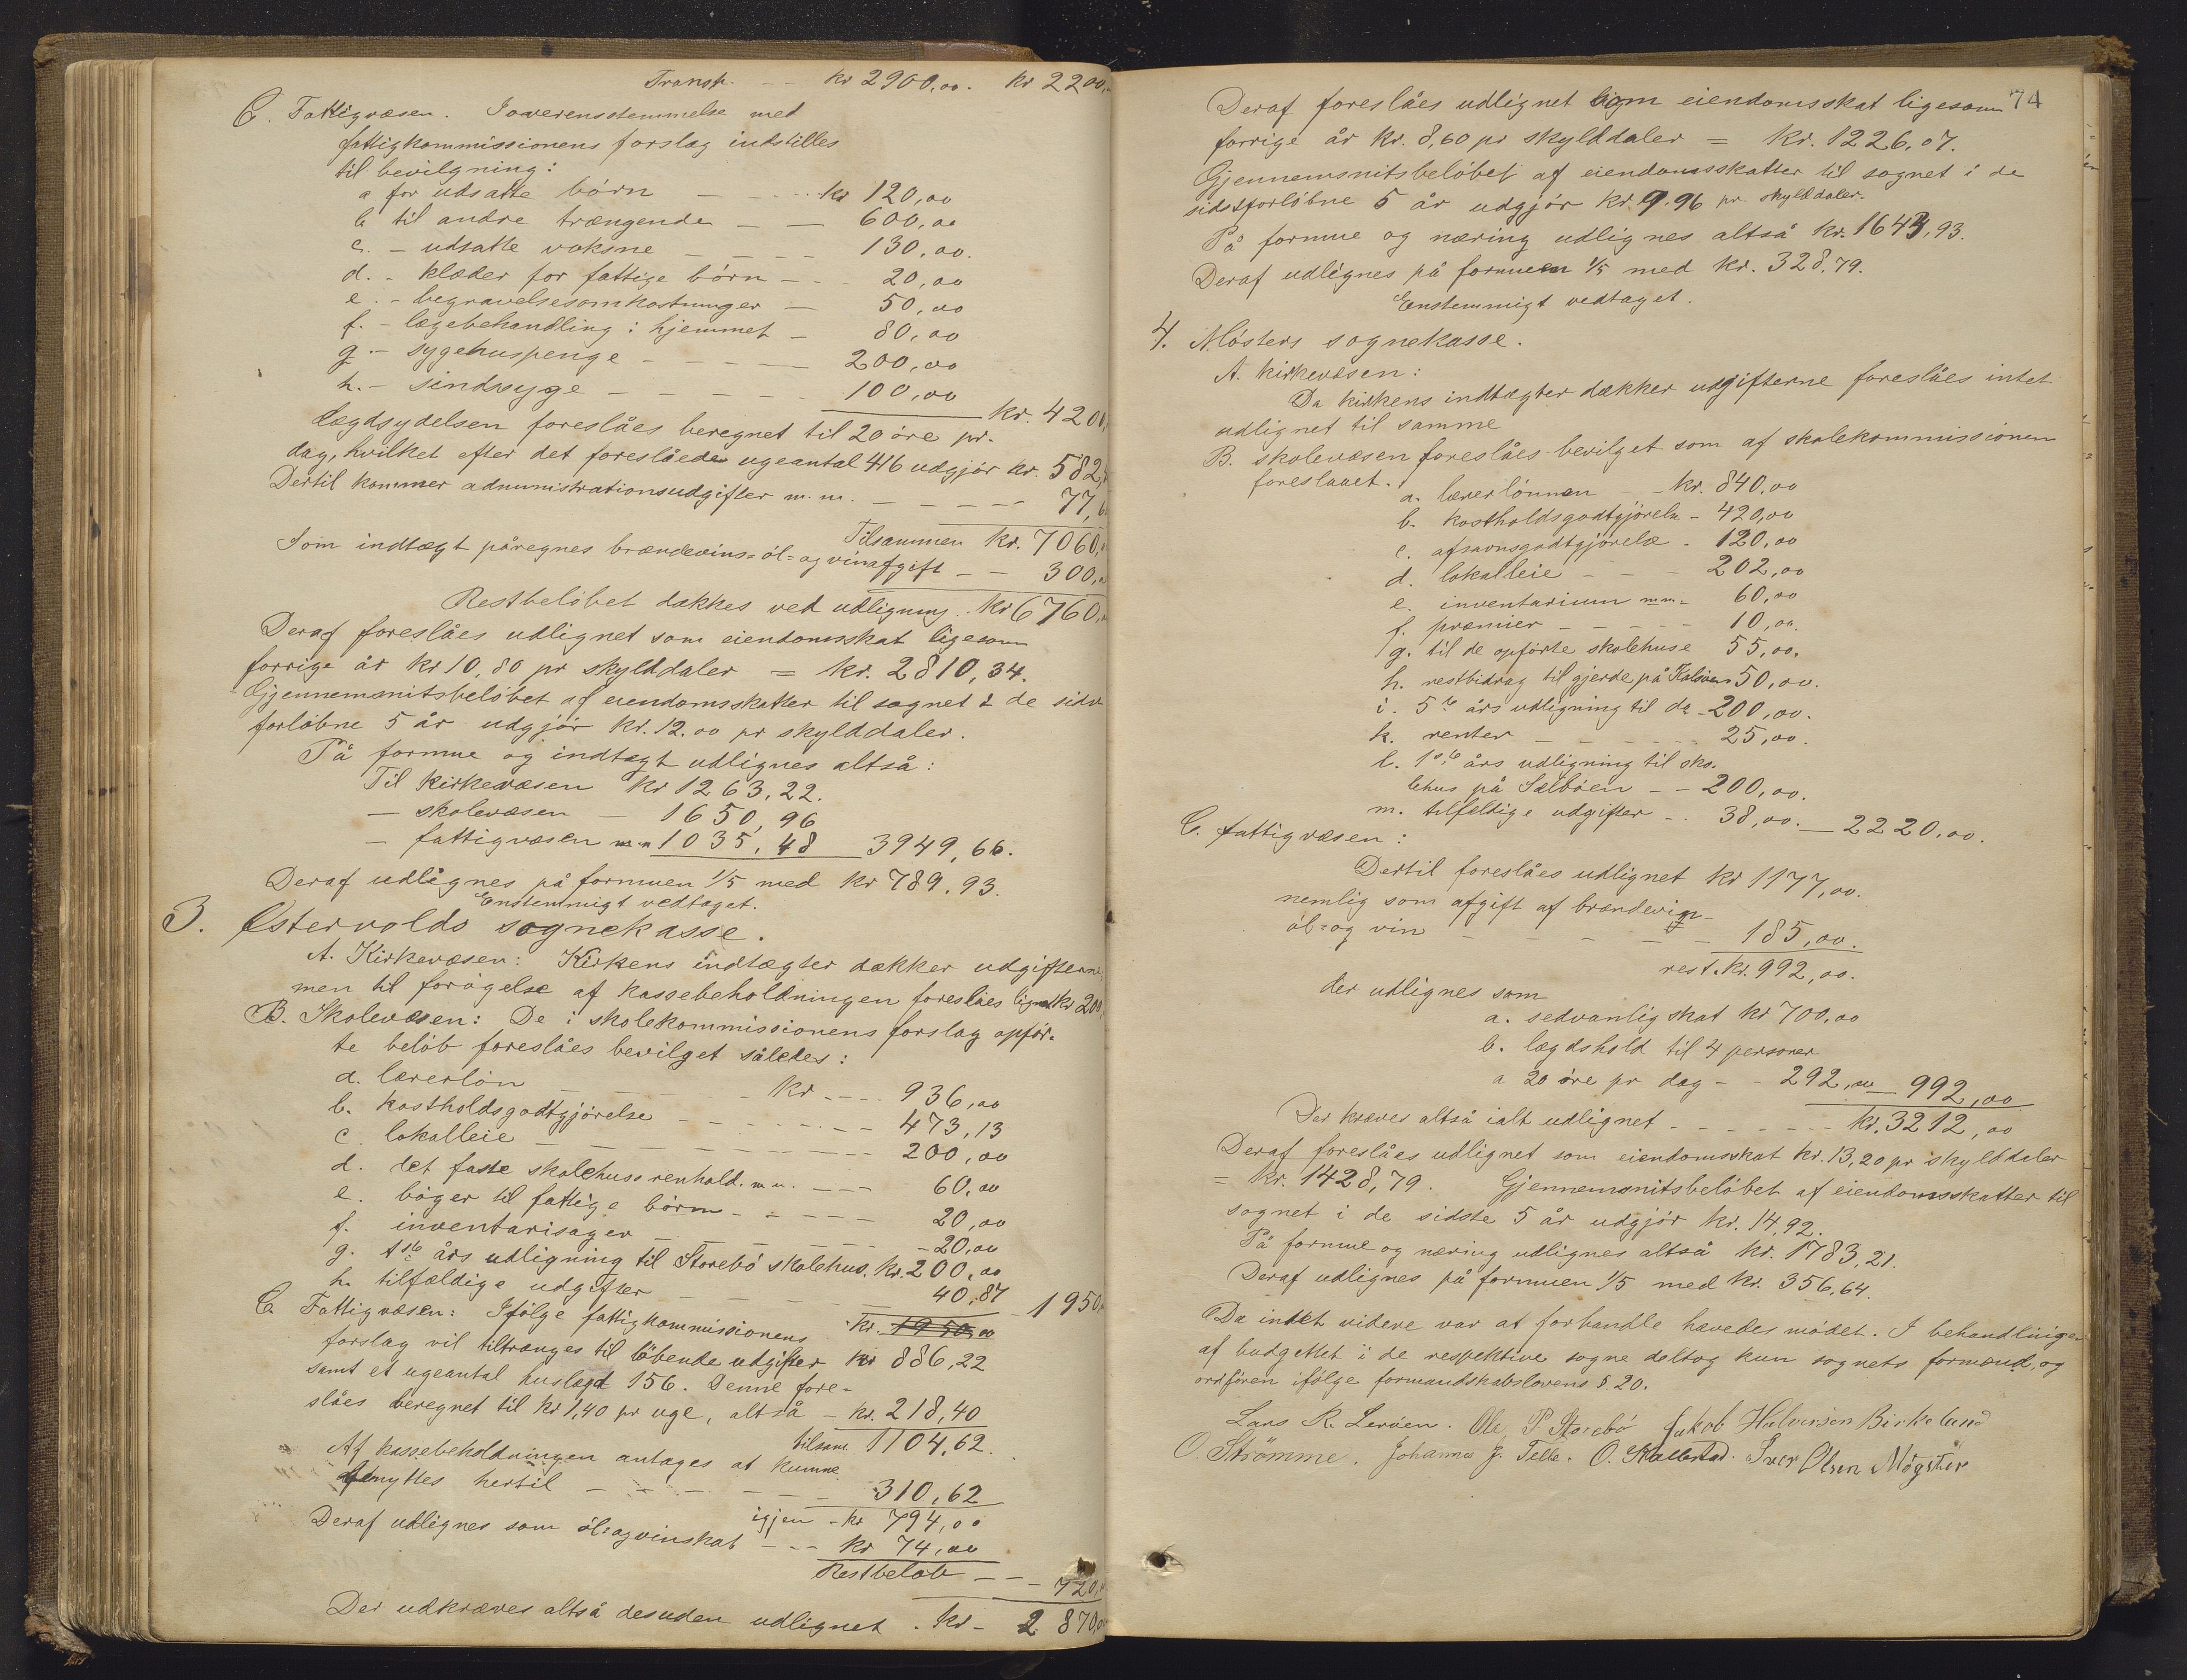 Transp. - - kr 2900,00. kr 2200,
C. Fattigvæsen. I overensstemmelse med
fattigkommissionens forslag indstilles
til bevilgning:
a for udsatte börn - - - kr 120,00
b til andre trængende - - 600,00
c. - udsatte voksne - - - - 130,00.
d. - klæder for fattige börn - - 20,00
e. - begravelsesomkostninger - 50,00
f. - lægebehandling i hjemmet - 80,00
g - sygehuspenge - - - - 200,00
h. - sindssyge - - - - - 100,00 kr. 4200,
Lægdsydelsen foreslåes beregnet til 20 öre pr.
dag, hvilket efter det foreslåede ugeantal 416 udgjör kr. 582,
Dertil kommer administrationsudgifter m.m. - - - - 77,6
Tilsammen kr. 7060,
Som indtægt påregnes brændevins= öl= og vinafgift - - 300,
Restbelöbet dækkes ved udligning . kr 6760,
Deraf foreslåes udlignet som eiendomsskat ligesom
forrige år kr 10,80 pr skylddaler = kr. 2810,34.
Gjennemsnitsbelöbet af eiendomsskatter til sognet i de sidst
forlöbne 5 år udgjör kr. 12.00 pr skylddaler.
På formue og indtægt udlignes altså:
Til kirkevæsen kr 1263,22.
- skolevæsen - 1650,96
- fattigvæsen m.m 1035,48 3949,66.
Deraf udlignes på formuen 1/5 med kr 789,93.
Enstemmigt vedtaget.
3. Østervolds sognekasse.
A. Kirkevæsen: Kirkens indtægter dækker udgifterne
men til forögelse af kassebeholdningen foreslåes lignet kr 200,
B. Skolevæsen: De i skolekommissionens forslag opför-
te belöb foreslåes bevilget således:
a. lærerlön - - - kr - - - 936,00
b. kostholdsgodtgjörelse - - - - - - - 473,13
c. lokalleie - - - - - - - - 200,00
d. det faste skolehuss renhold. m.m. - - - 60,00
e. böger til fattige börn - - - - - 20,00
f. inventarisager - - - - - - 20,00
g. 1ste års udligning til Storebö skolehus. kr. 200,00
h. tilfældige udgifter - - - - 40,87 - 1950,
C Fattigvæsen: Ifölge fattigkommissionens kr. 1950,00
forslag vil tiltrænges til löbende udgifter kr 886,22
samt et ugeantal huslægd 156. Denne fore-
slåes beregnet til kr 1,40 pr uge, altså - kr. 218,40
tilsam. 1104,62.
Af kassebeholdningen antages at kunne
benyttes hertil - - - - - - 310,62
igjen - kr 794,00
Deraf udlignes som öl= og vinskat - - - kr 74,00
Restbelöb - - - 720,
Der udkræves altså desuden udlignet . kr - 2 870,00
74
Deraf foreslåes udlignet som eiendomsskat ligesom
forrige år kr. 8,60 pr skylddaler = kr. 1226,07.
Gjennemsnitsbelöbet af eiendomsskatter til sognet i de
sidstforlöbne 5 år udgjör kr. 9.96 pr. skylddaler.
På formue og næring udlignes altså kr. 1643,93.
Deraf udlignes på formuen 1/5 med kr. 328,79.
Enstemmigt vedtaget.
4. Mösters sognekasse.
A. kirkevæsen:
Da kirkens indtægter dækker udgifterne foreslåes intet
udlignet til samme
B. skolevæsen foreslåes bevilget som af skolekommissionen
foreslaaet.
a. lærerlönnen - - kr. 840,00
b. kostholdsgodtgjörelse - 420,00
c. afsavnsgodtgjörelse - 120,00
d. lokalleie - - - 202,00
e. inventarium m.m. - 60,00
f. præmier - - - - - 10,00.
g. til de opförte skolehuse 55,00.
h. restbidrag til gjerde på Kalsöen 50,00.
i. 5te års udligning til do - 200,00.
k. renter - - - - - 25,00.
l. 1ste års udligning til sko-
lehus på Selböen - - 200,00.
m. tilfældige udgifter - - 38,00. - 2220,00.
C. fattigvæsen:
Dertil foreslåes udlignet kr 1177,00.
nemlig som afgift af brændevin-
öl= og vin - - - - - - 185,00.
rest. kr. 992,00.
der udlignes som
a. sedvanlig skat kr 700,00
b. lægdshold til 4 personer
a 20 öre pr dag - - 292,00 - 992,00
Der kræves altså ialt udlignet - - - - - - - kr. 3212,00
Deraf foreslåes udlignet som eiendomsskat kr. 13,20 pr skylddaler
= kr. 1428,79. Gjennemsnitsbelöbet af eiendomsskatter til
sognet i de sidste 5 år udgjör kr. 14,92.
På formue og næring udlignes altså kr. 1783,21.
Deraf udlignes på formuen 1/5 med kr. 356,64.
Da intet videre var at forhandle hævedes mödet. I behandlingen
af budgettet i de respektive sogne deltog kun sognets formænd, og
ordfören ifölge formandskabslovens § 20.
Lars R. Leröen. Ole P Storebö Jakob Halvorsen Birkeland
O. Strömme. Johannes J. Telle. O. Kallestad. Iver Olsen Mögster